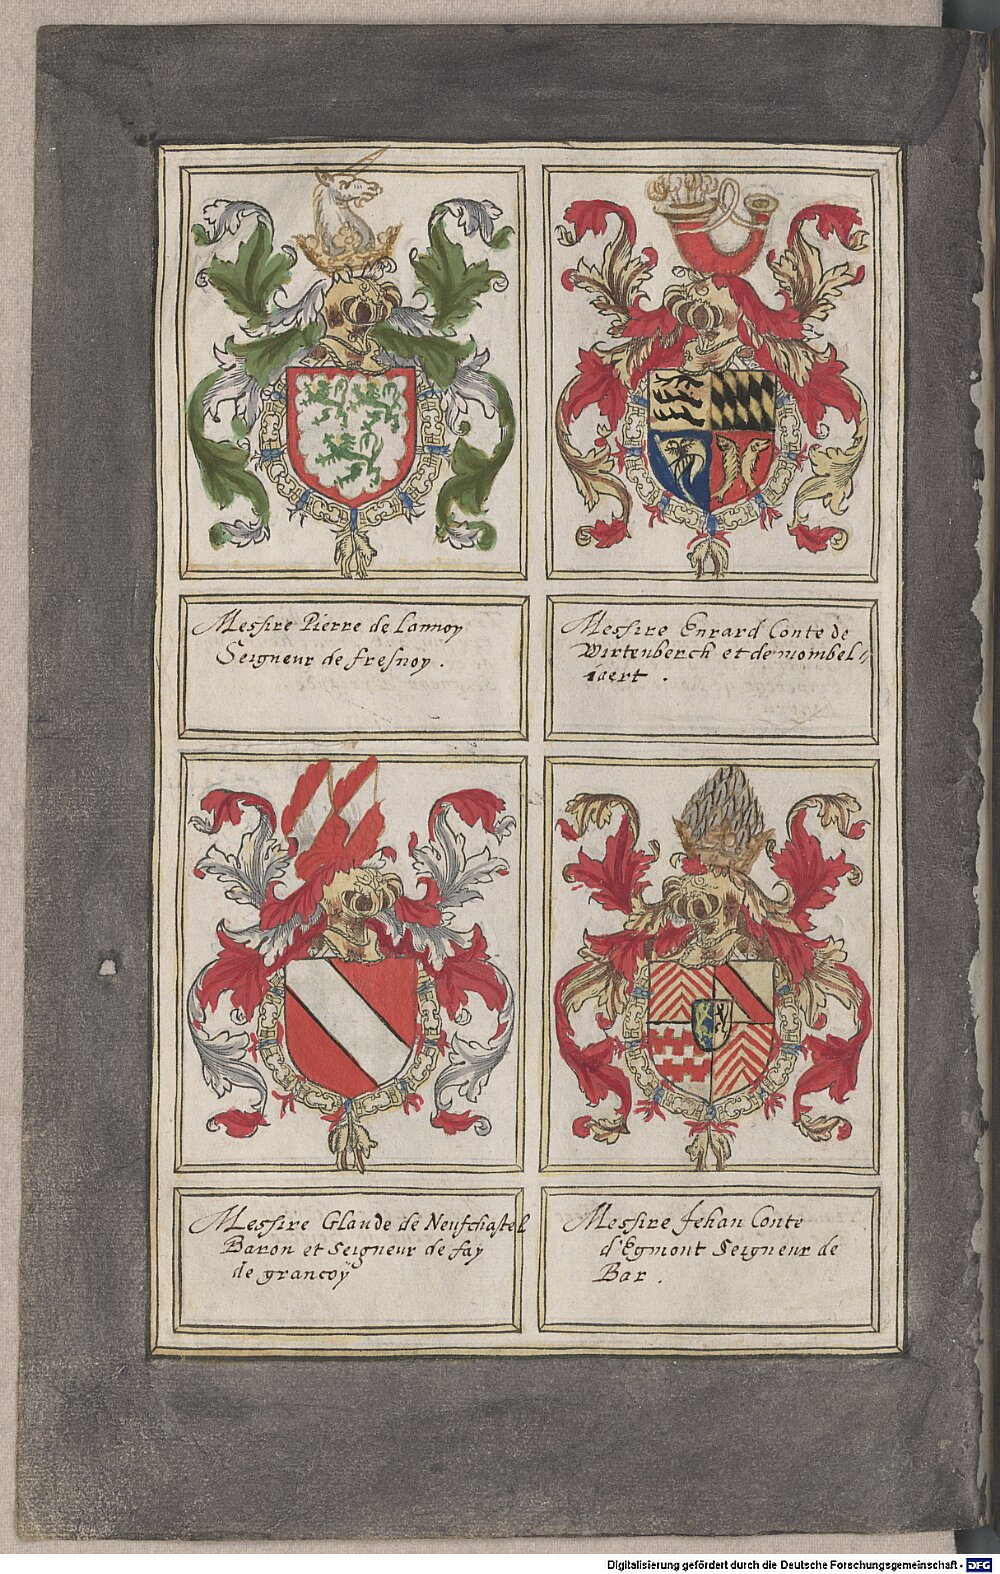 Messire Pierre de Lannoy
Seigneur de fresnoy .
Messire Enrard Conte de
Wirtenberch et de mombel„
iaert .
Messire Glaude de Neufchastel
Baron et Seigneur de fay
de grancoÿ
Messire Jehan Conte
d'Egmont Seigneur de
Bar .
Digitalisierung gefördert durch die Deutsche Forschungsgemeinschaft - DFG